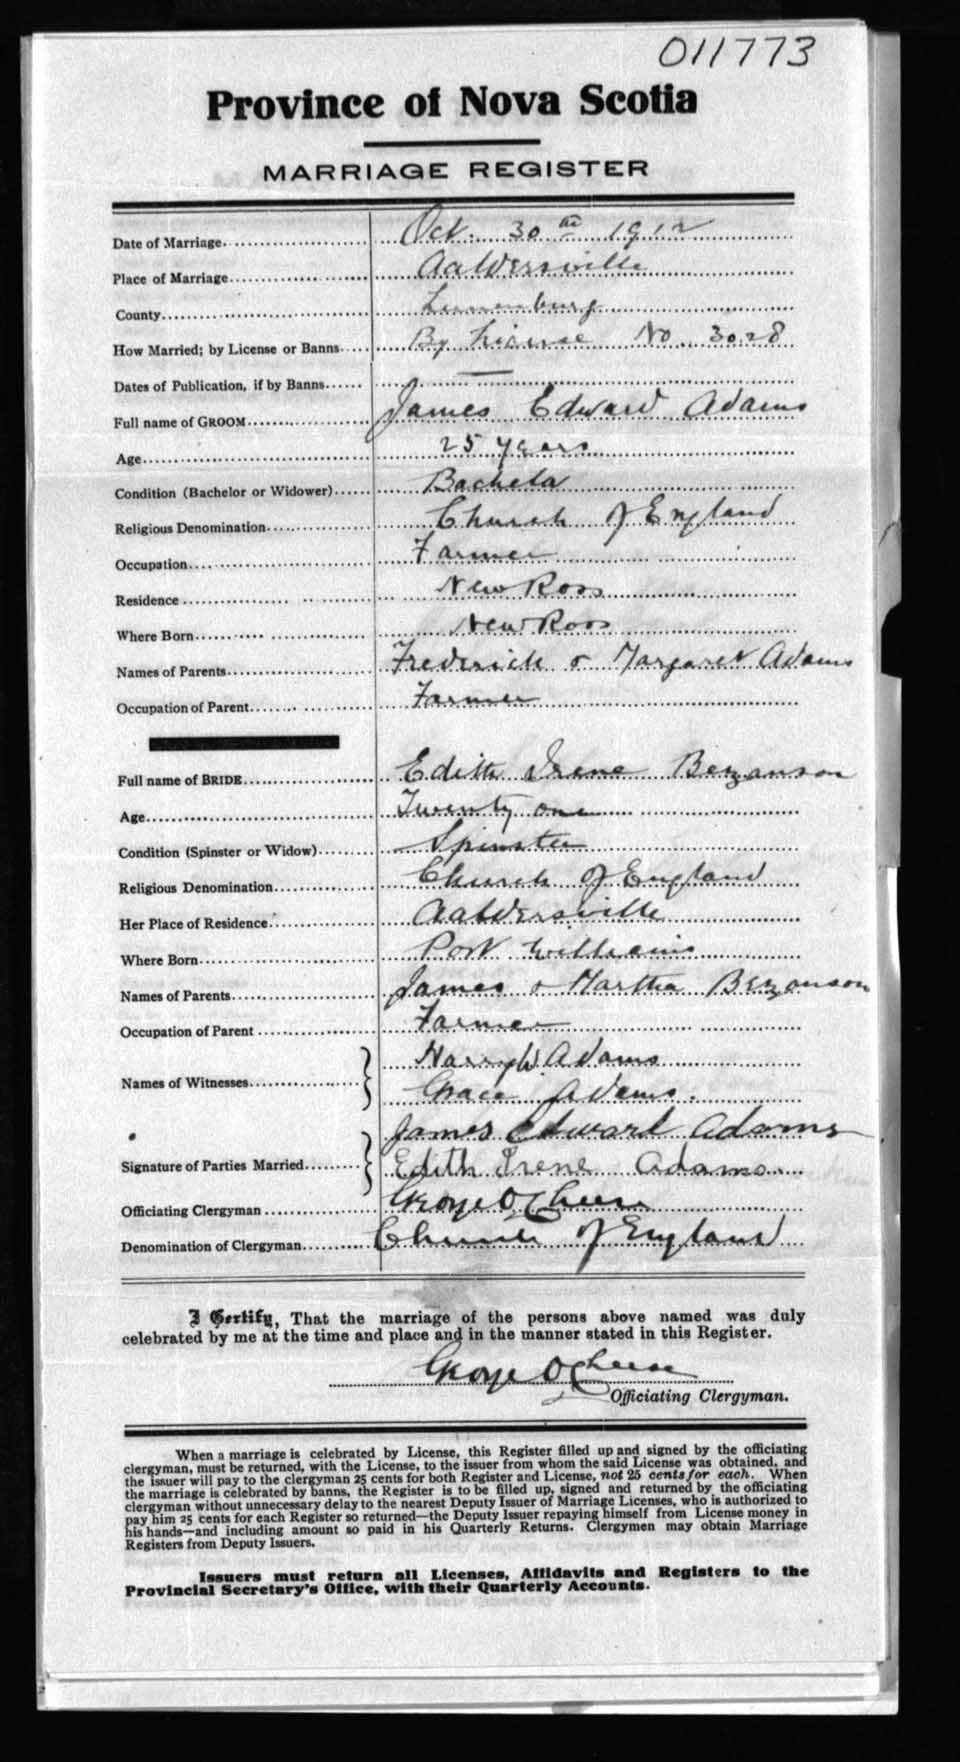 011773
Province of Nova Scotia
MARRIAGE REGISTER
Date of Marriage Oct. 30th 1912
Place of Marriage Aaldersville
County Lunenburg
How Married; by License or Banns By License No. 3028
Dates of Publication, if by Banns —
Full name of GROOM James Edward Adams
Age 25 years
Condition (Bachelor or Widower) Bachelor
Religious Denomination Church of England
Occupation Farmer
Residence New Ross
Where Born New Ross
Names of Parents Frederick & Margaret Adams
Occupation of Parent Farmer
Full name of BRIDE Edith Irene Bezanson
Age Twenty one
Condition (Spinster or Widow) Spinster
Religious Denomination Church of England
Her Place of Residence Aaldersville
Where Born Port Williams
Names of Parents James & Martha Bezanson
Occupation of Parent Farmer
Names of Witnesses Harry W. Adams
Grace Adams.
Signature of Parties Married James Edward Adams
Edith Irene Adams
Officiating Clergyman George O Cheese
Denomination of Clergyman Church of England
I Certify, That the marriage of the persons above named was duly
celebrated by me at the time and place and in the manner stated in this Register.
George O Cheese
Officiating Clergyman.
When a marriage is celebrated by License, this Register filled up and signed by the officiating
clergyman, must be returned, with the License, to the issuer from whom the said License was obtained, and
the issuer will pay to the clergyman 25 cents for both Register and License, not 25 cents for each. When
the marriage is celebrated by banns, the Register is to be filled up, signed and returned by the officiating
clergyman without unnecessary delay to the nearest Deputy Issuer of Marriage Licenses, who is authorized to
pay him 25 cents for each Register so returned—the Deputy Issuer repaying himself from License money in
his hands—and including amount so paid in his Quarterly Returns. Clergymen may obtain Marriage
Registers from Deputy Issuers.
Issuers must return all Licenses, Affidavits and Registers to the
Provincial Secretary's Office, with their Quarterly Accounts.